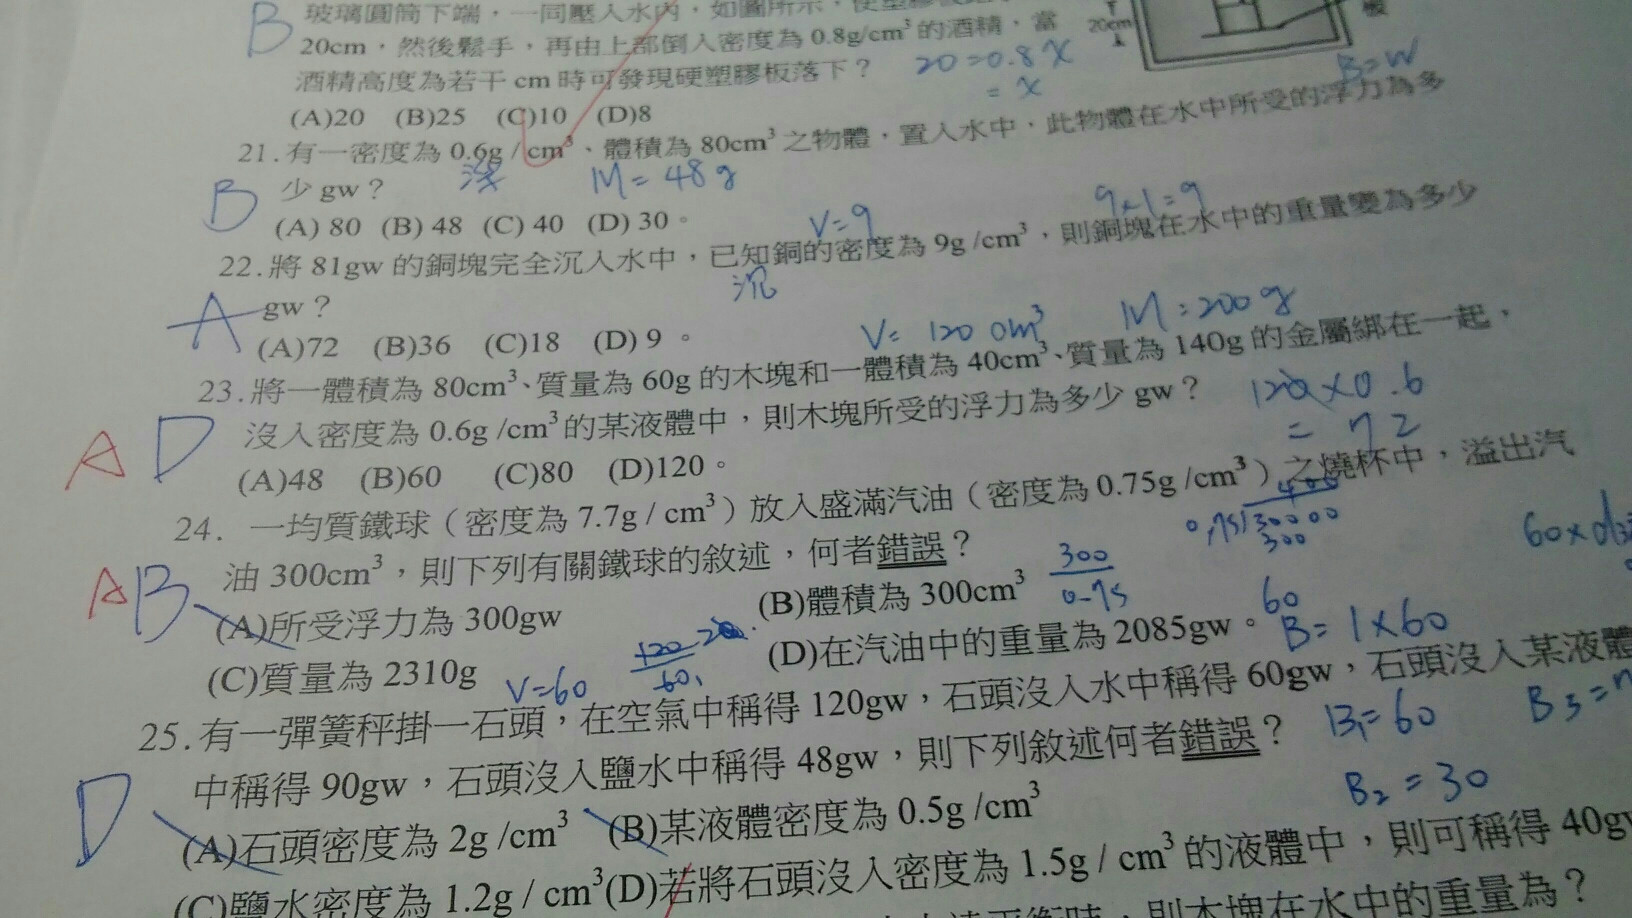 玻璃圓筒下端，一同壓入水內，如圖所示，使塑膠板
B
20cm，然後鬆手，再由上部倒入密度為 0.8g/cm³ 的酒精，當
20cm
酒精高度為若干 cm 時可發現硬塑膠板落下？
20=0.8X
= X
B=W
(A)20 (B)25 (C)10 (D)8
21.有一密度為 0.6g / cm³、體積為 80cm³ 之物體，置入水中，此物體在水中所受的浮力為多
浮 M= 48 g
B
少 gw？
(A) 80 (B) 48 (C) 40 (D) 30。
V=9
9x1=9
22.將 81gw 的銅塊完全沉入水中，已知銅的密度為 9g /cm³，則銅塊在水中的重量變為多少
沉
A
gw？
(A)72 (B)36 (C)18 (D) 9 。
V= 120 cm³ M:200 g
23.將一體積為 80cm³、質量為 60g 的木塊和一體積為 40cm³、質量為 140g 的金屬綁在一起，
A D
沒入密度為 0.6g /cm³ 的某液體中，則木塊所受的浮力為多少 gw？
120 x 0.6
= 72
(A)48 (B)60 (C)80 (D)120。
24. 一均質鐵球（密度為 7.7g / cm³）放入盛滿汽油（密度為 0.75g /cm³）之燒杯中，溢出汽
A B
油 300cm³，則下列有關鐵球的敘述，何者錯誤？
300
0.75
(A)所受浮力為 300gw
(B)體積為 300cm³
(C)質量為 2310g
(D)在汽油中的重量為 2085gw。
V=60
60
B= 1x60
25.有一彈簧秤掛一石頭，在空氣中稱得 120gw，石頭沒入水中稱得 60gw，石頭沒入某液體
B₁= 60
D
中稱得 90gw，石頭沒入鹽水中稱得 48gw，則下列敘述何者錯誤？
B₂ = 30
(A)石頭密度為 2g /cm³ (B)某液體密度為 0.5g /cm³
(C)鹽水密度為 1.2g / cm³ (D)若將石頭沒入密度為 1.5g / cm³ 的液體中，則可稱得 40gw
則木塊在水中的重量為？